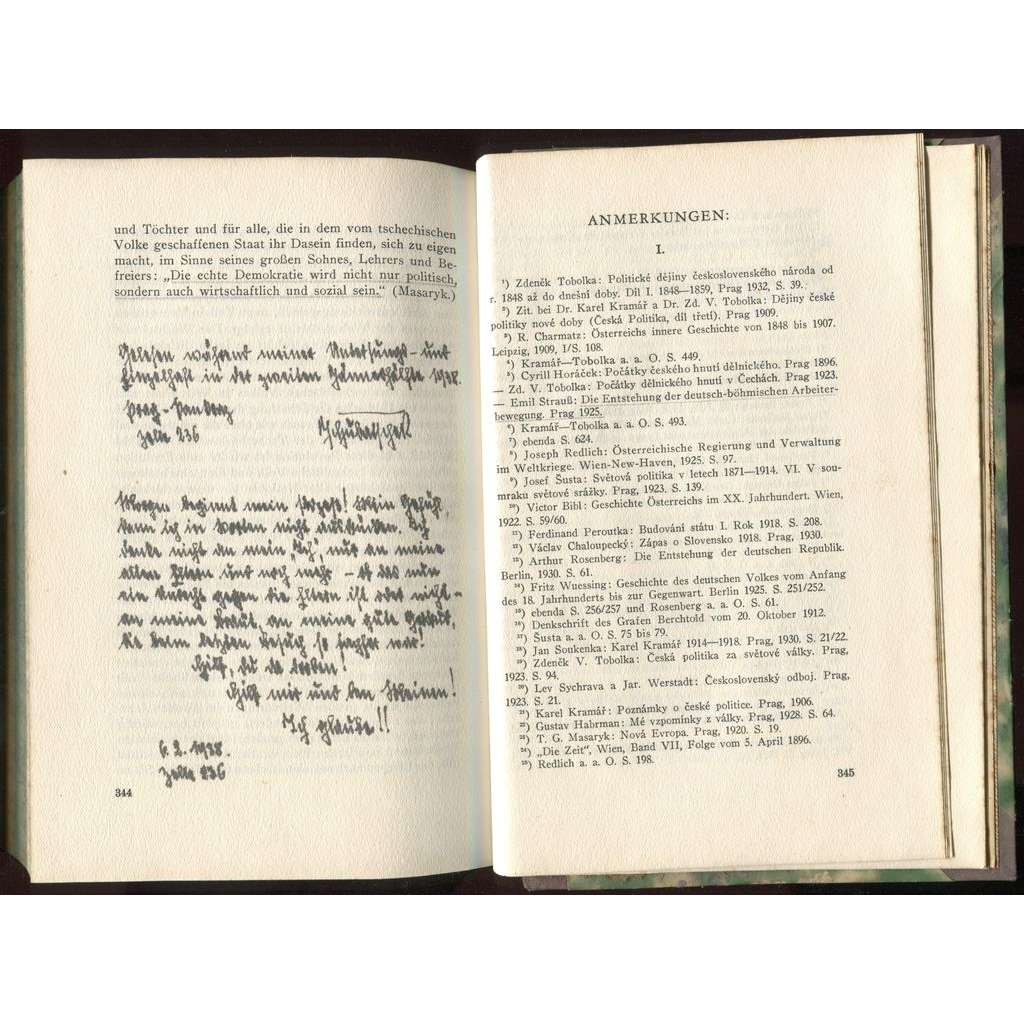 und Töchter und für alle, die in dem vom tschechischen
Volke geschaffenen Staat ihr Dasein finden, sich zu eigen
macht, im Sinne seines großen Sohnes, Lehrers und Be-
freiers: „Die echte Demokratie wird nicht nur politisch,
sondern auch wirtschaftlich und sozial sein.“ (Masaryk.)
Gelesen während meiner Untersungs- und
Einzelhaft in der zweiten Jännerhälfte 1938.
Prag-Pankraz
Zelle 236
Morgen beginnt mein Prozeß! Mein Gefühl
kann ich in Worten nicht ausdrücken. Ich
denke nicht an mein „Ich“, nur an meine
alten Eltern und noch mehr – ob das nun
ein Unrecht gegen die Eltern ist oder nicht –
an meine Braut, an meine gute
die beim letzten Besuch so tapfer war!
Hilf, du da droben!
Hilf mir und den Meinen!
Ich glaube!!
6.2.1938.
Zelle 236
344
ANMERKUNGEN:
I.
¹) Zdeněk Tobolka: Politické dějiny československého národa od
r. 1848 až do dnešní doby. Díl I. 1848—1859, Prag 1932, S. 39.
²) Zit. bei Dr. Karel Kramář a Dr. Zd. V. Tobolka: Dějiny české
politiky nové doby (Česká Politika, díl třetí). Prag 1909.
³) R. Charmatz: Österreichs innere Geschichte von 1848 bis 1907.
Leipzig, 1909, I/S. 108.
⁴) Kramář—Tobolka a. a. O. S. 449.
⁵) Cyrill Horáček: Počátky českého hnutí dělnického. Prag 1896.
— Zd. V. Tobolka: Počátky dělnického hnutí v Čechách. Prag 1923.
— Emil Strauß: Die Entstehung der deutsch-böhmischen Arbeiter-
bewegung. Prag 1925.
⁶) Kramář—Tobolka a. a. O. S. 493.
⁷) ebenda S. 624.
⁸) Joseph Redlich: Österreichische Regierung und Verwaltung
im Weltkriege. Wien-New-Haven, 1925. S. 97.
⁹) Josef Šusta: Světová politika v letech 1871—1914. VI. V sou-
mraku světové srážky. Prag, 1923. S. 139.
¹⁰) Victor Bibl: Geschichte Österreichs im XX. Jahrhundert. Wien,
1922. S. 59/60.
¹¹) Ferdinand Peroutka: Budování státu I. Rok 1918. S. 208.
¹²) Václav Chaloupecký: Zápas o Slovensko 1918. Prag, 1930.
¹³) Arthur Rosenberg: Die Entstehung der deutschen Republik.
Berlin, 1930. S. 61.
¹⁴) Fritz Wuessing: Geschichte des deutschen Volkes vom Anfang
des 18. Jahrhunderts bis zur Gegenwart. Berlin 1925. S. 251/252.
¹⁵) ebenda S. 256/257 und Rosenberg a. a. O. S. 61.
¹⁶) Denkschrift des Grafen Berchtold vom 20. Oktober 1912.
¹⁷) Šusta a. a. O. S. 75 bis 79.
¹⁸) Jan Soukenka: Karel Kramář 1914—1918. Prag, 1930. S. 21/22.
¹⁹) Zdeněk V. Tobolka: Česká politika za světové války. Prag,
1923. S. 94.
²⁰) Lev Sychrava a Jar. Werstadt: Československý odboj. Prag,
1923. S. 21.
²¹) Karel Kramář: Poznámky o české politice. Prag, 1906.
²²) Gustav Habrman: Mé vzpomínky z války. Prag, 1928. S. 64.
²³) T. G. Masaryk: Nová Evropa. Prag, 1920. S. 19.
²⁴) „Die Zeit“, Wien, Band VII, Folge vom 5. April 1896.
²⁵) Redlich a. a. O. S. 198.
345